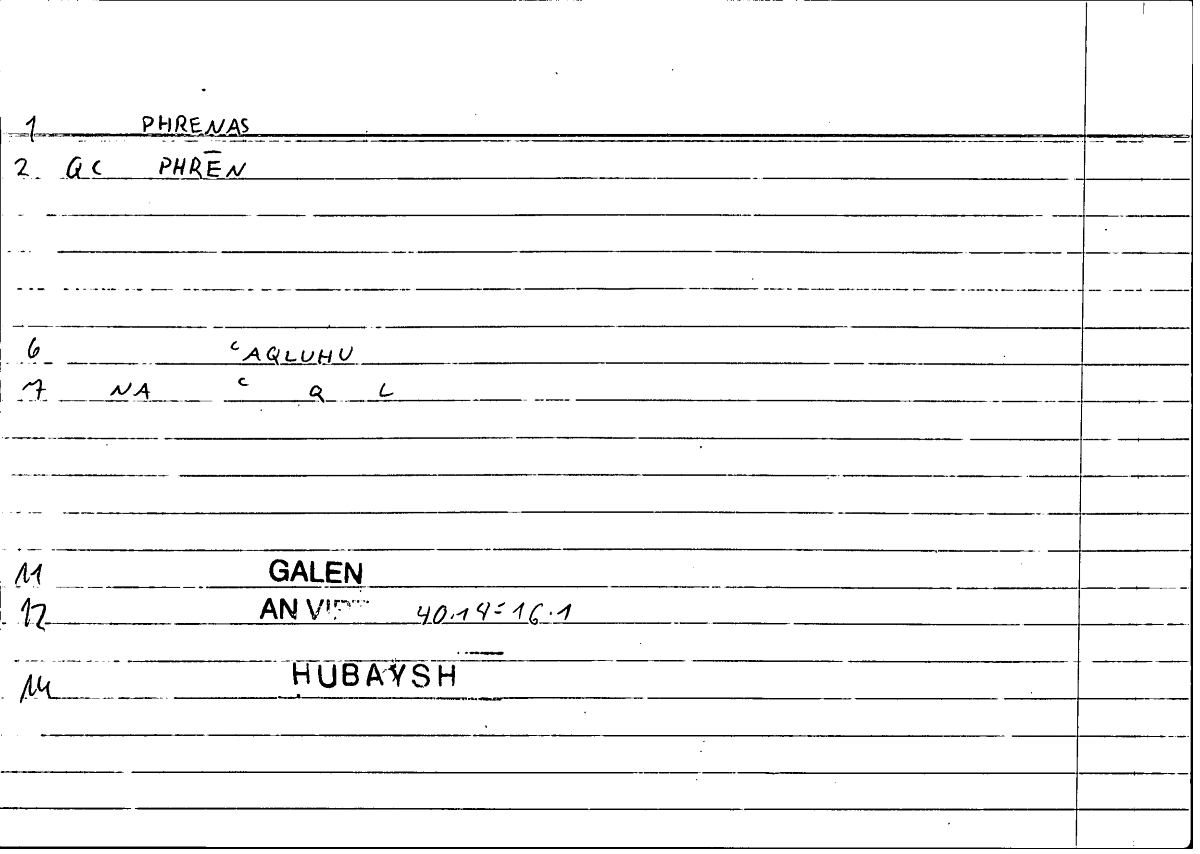 1 PHRENAS
2. QC PHRĒN
6 ᶜAQLUHU
7 NA ᶜ Q L
11 GALEN
12 AN 40.14=16.1
14 HUBAYSH